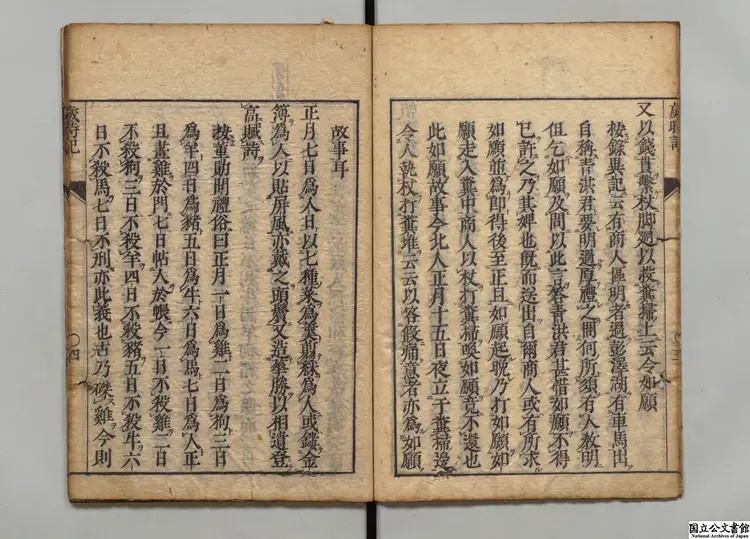 歲時記
又以錢貫繫杖脚廻以投糞掃上云令如願
按錄異記云有商人區明者過彭澤湖有車馬出
自稱青洪君要明過厚禮之問何所須有人教明
但乞如願及問以此言答青洪君甚惜如願不得
已許之乃其婢也既而送出自爾商人或有所求
如願並爲即得後至正旦如願起晚乃打如願如
願走入糞中商人以杖打糞掃喚如願竟不還也
此如願故事今北人正月十五日夜立于糞掃邊
令人執杖打糞堆云云以答假痛意者亦爲如願
故事耳
正月七日爲人日以七種菜爲羹剪綵爲人或鏤金
簿爲人以貼屏風亦戴之頭鬢又造華勝以相遺登
高賦詩
按董勛問禮俗曰正月一日爲雞二日爲狗三日
爲羊四日爲豬五日爲牛六日爲馬七日爲人正
旦畫雞於門七日帖人於帳今一日不殺雞二日
不殺狗三日不殺羊四日不殺豬五日不殺牛六
日不殺馬七日不刑亦此義也古乃磔雞今則
歲時記
〇四
国立公文書館
National Archives of Japan